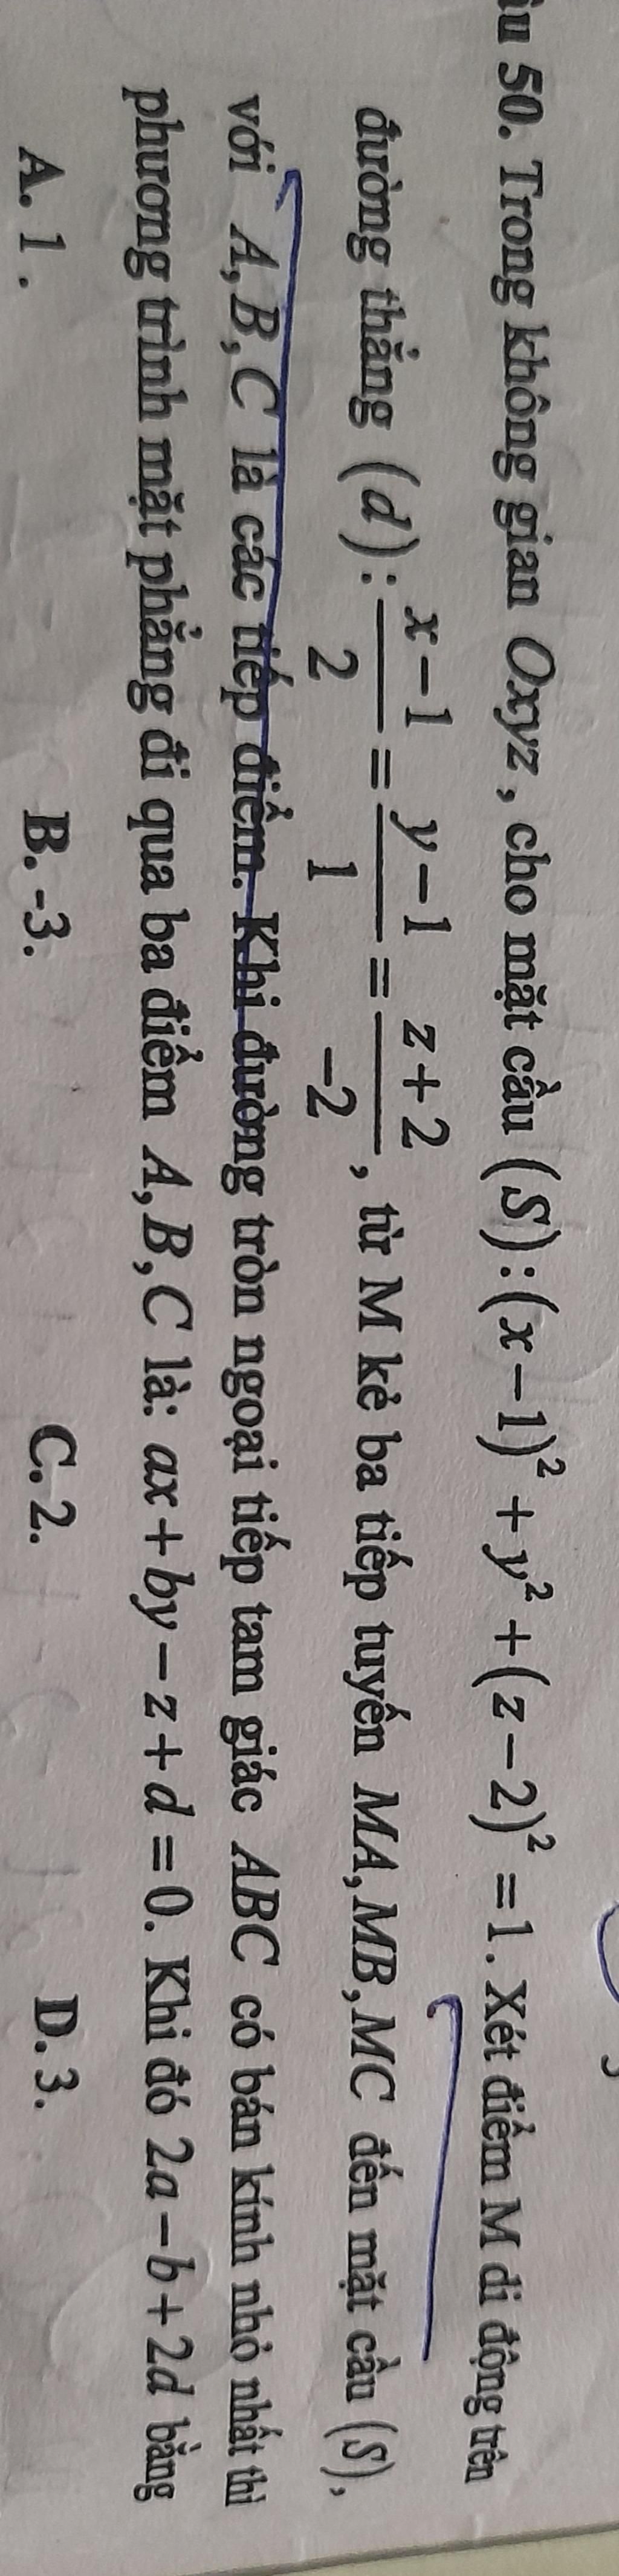 50. Trong không gian Oxyz, cho mặt cầu (S):(x−1)²+y²+(z−2)²=1. Xét điểm M di động trên
đường thẳng (d): (x−1)/2 = (y−1)/1 = (z+2)/−2, từ M kẻ ba tiếp tuyến MA, MB, MC đến mặt cầu (S),
với A, B, C là các tiếp điểm. Khi đường tròn ngoại tiếp tam giác ABC có bán kính nhỏ nhất thì
phương trình mặt phẳng đi qua ba điểm A, B, C là: ax+by−z+d=0. Khi đó 2a−b+2d bằng
A. 1. B. -3. C. 2. D. 3.